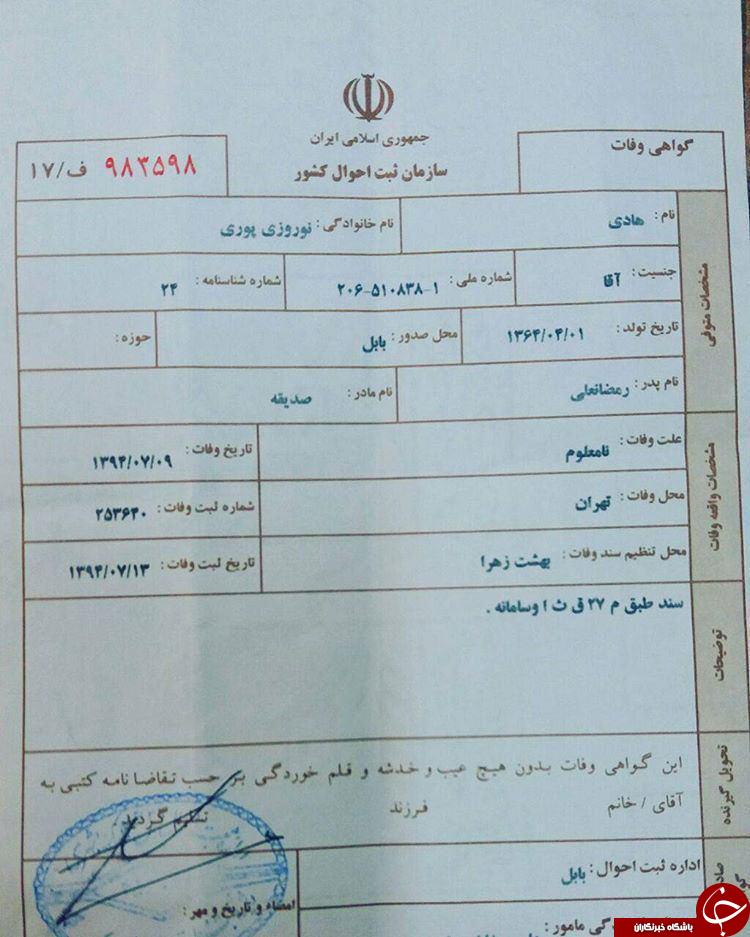 جمهوری اسلامی ایران
سازمان ثبت احوال کشور
گواهی وفات
۹۸۳۵۹۸ ف/۱۷
مشخصات متوفی
نام: هادی
نام خانوادگی: نوروزی پوری
جنسیت: آقا
شماره ملی: ۲۰۶-۵۱۰۸۳۸-۱
شماره شناسنامه: ۲۴
تاریخ تولد: ۱۳۶۴/۰۴/۰۱
محل صدور: بابل
حوزه:
نام پدر: رمضانعلی
نام مادر: صدیقه
مشخصات واقعه وفات
علت وفات: نامعلوم
تاریخ وفات: ۱۳۹۴/۰۷/۰۹
محل وفات: تهران
شماره ثبت وفات: ۲۵۳۶۴۰
محل تنظیم سند وفات: بهشت زهرا
تاریخ ثبت وفات: ۱۳۹۴/۰۷/۱۳
توضیحات
سند طبق م ۲۷ ق ث ا وسامانه .
تحویل گیرنده
این گواهی وفات بدون هیچ عیب و خدشه و قلم خوردگی بر حسب تقاضا نامه کتبی به
آقای / خانم فرزند تسلیم گردید.
اداره ثبت احوال: بابل
امضاء و تاریخ و مهر:
گی مامور:
باشگاه خبرنگاران